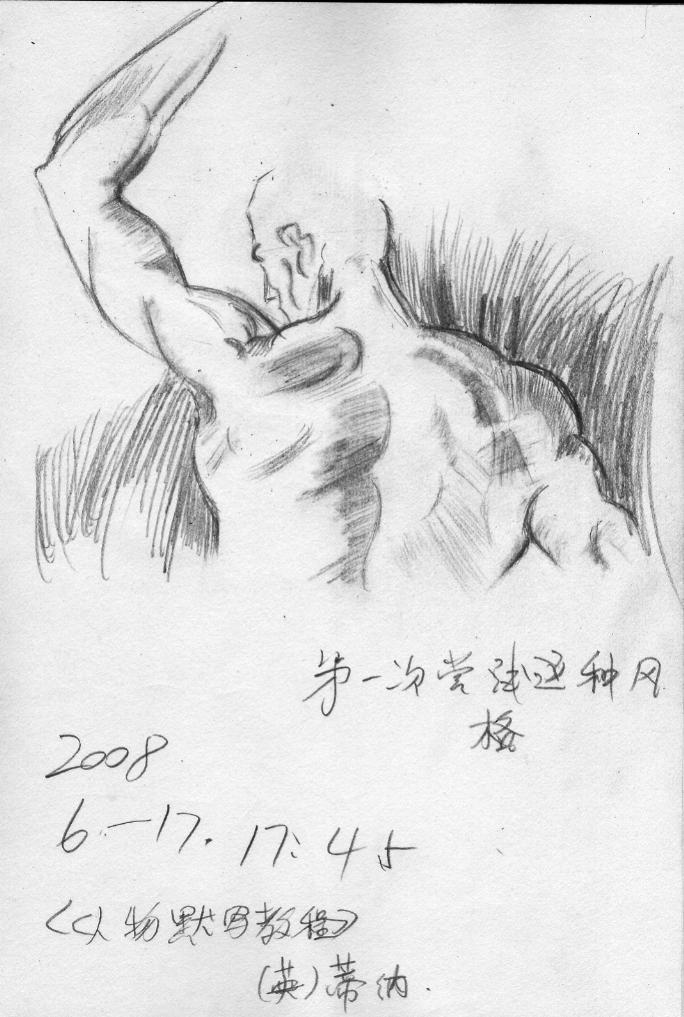 第一次尝试这种风
格
2008
6.-17. 17:45
《人物默写教程》
(英)蒂纳.